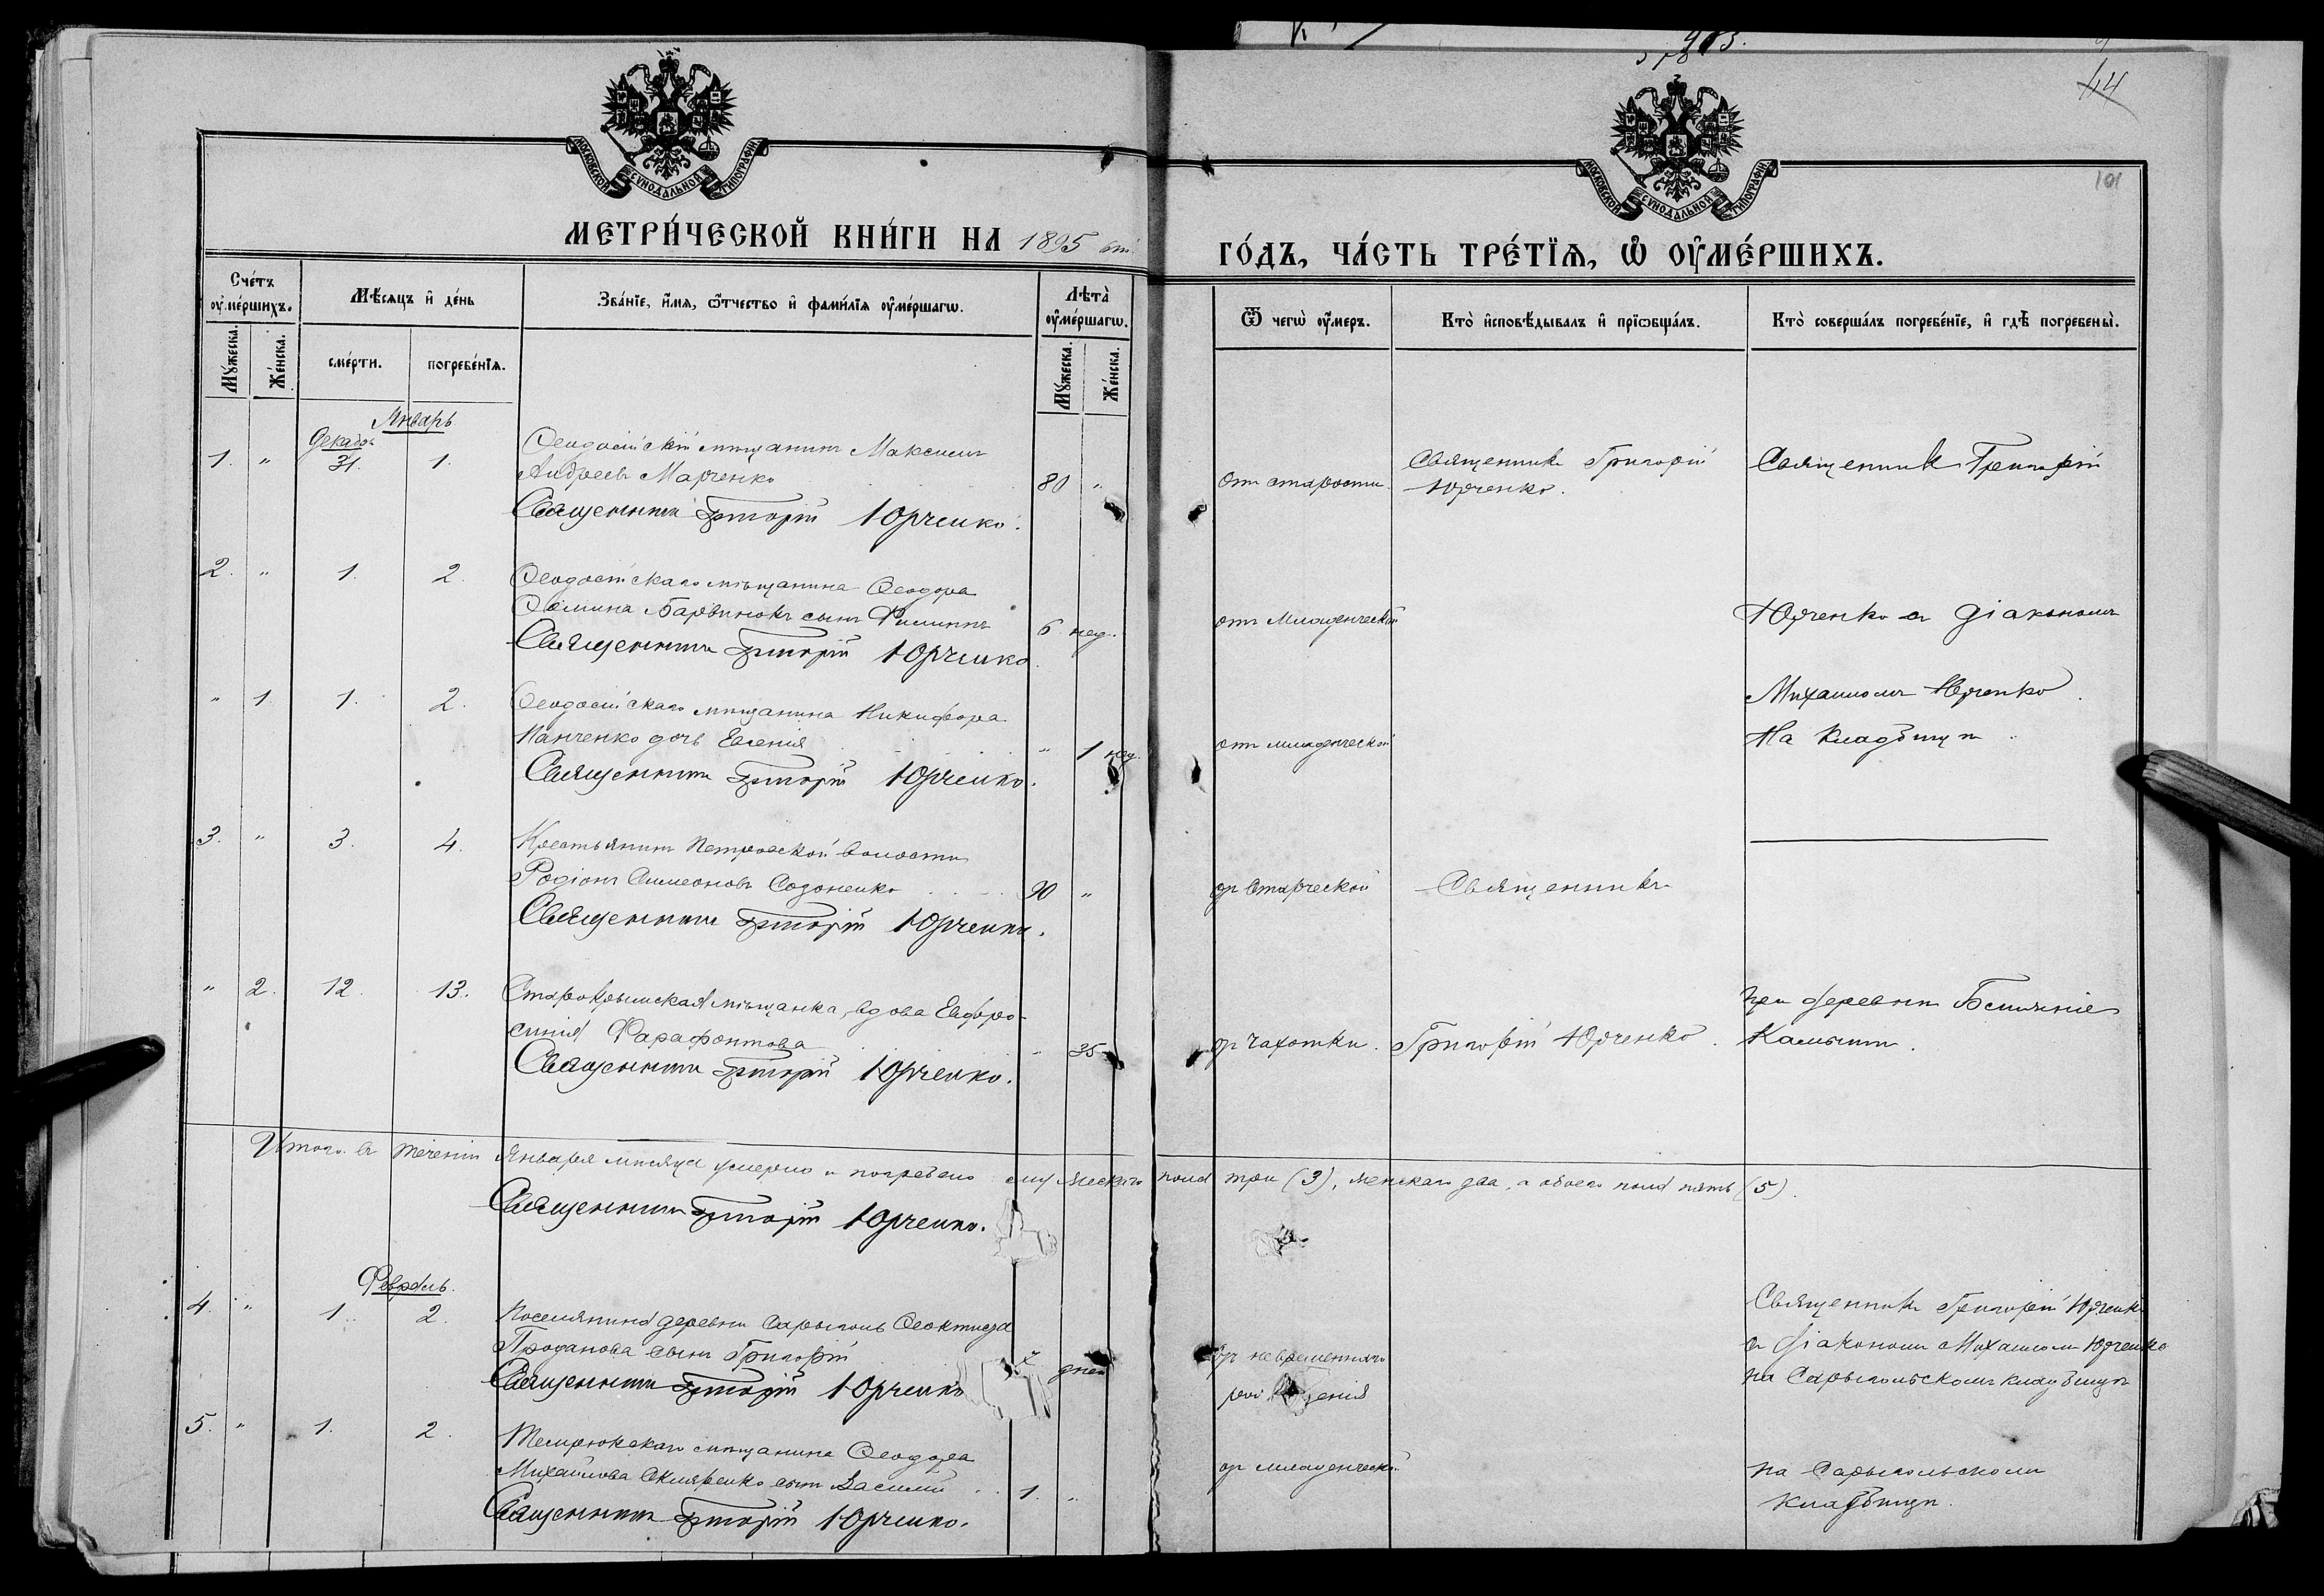 903.
44
101
МОСКОВСКОЙ СѴНОДАЛЬНОЙ ТИПОГРАФІИ
МОСКОВСКОЙ СѴНОДАЛЬНОЙ ТИПОГРАФІИ
МЕТРИ́ЧЕСКОЙ КНИ́ГИ НА 1895
ГО́ДЪ, ЧА́СТЬ ТРЕ́ТЇѦ, Ѽ ОУ҆МЕ́РШИХЪ.
Сче́тъ оу҆ме́ршихъ.
Мѣ́сяцъ и҆ де́нь
Зва́нїе, и҆́мя, ѻ҆́тчество и҆ фами́лїя оу҆ме́ршагѡ.
Лѣта̀ оу҆ме́ршагѡ.
Ѿ чегѡ̀ оу҆́меръ.
Кто̀ и҆сповѣ́дывалъ и҆ прїѡбща́лъ.
Кто̀ соверша́лъ погребе́нїе, и҆ гдѣ̀ погребены̀.
Му́жеска.
Же́нска.
сме́рти.
погребе́нїя.
Му́жеска.
Же́нска.
Январь
Декабрь
1. " 31. 1. Ѳеодосійскій мѣщанинъ Максимъ
Андреевъ Марченко 80 "
Священникъ Григорій Юрченко.
отъ старости.
Священникъ Григорій
Юрченко.
Священникъ Григорій
2. " 1. 2. Ѳеодосійскаго мѣщанина Ѳеодора
Барвинокъ сынъ Филиппъ 6 нед.
Священникъ Григорій Юрченко.
отъ младенческой
Юрченко съ діакономъ
" 1. 1. 2. Ѳеодосійскаго мѣщанина Никифора
Панченко дочь Евгенія " 1 нед.
Священникъ Григорій Юрченко.
отъ младенческой
Михаиломъ Юрченко.
На кладбищѣ.
3. " 3. 4. Крестьянинъ Петровской волости
Родіонъ Симеоновъ Созоненко 90 "
Священникъ Григорій Юрченко.
отъ старческой
Священникъ
" 2. 12. 13. Старокрымская мѣщанка, вдова Евфро-
синія Фарафонтова " 35
Священникъ Григорій Юрченко.
отъ чахотки.
Григорій Юрченко.
при деревни
Камыши.
Итого въ теченіи Января мѣсяца умерло и погребено мужескаго пола три (3), женскаго два, а обоего пола пять (5).
Священникъ Григорій Юрченко.
Февраль.
4. " 1. 2. Поселянина деревни Сарыголь Ѳеоктиста
Проданова сынъ Григорій дней
Священникъ Григорій Юрченко
отъ невременнаго
рожденія
Священникъ Григорій Юрченко
съ діакономъ Михаиломъ Юрченко
на Сарыгольскомъ кладбищѣ
5. " 1. 2. Темрюкскаго мѣщанина Ѳеодора
Михайлова Скляренко сынъ Василій 1. "
Священникъ Григорій Юрченко.
отъ младенческой
на Сарыгольскомъ
кладбищѣ.